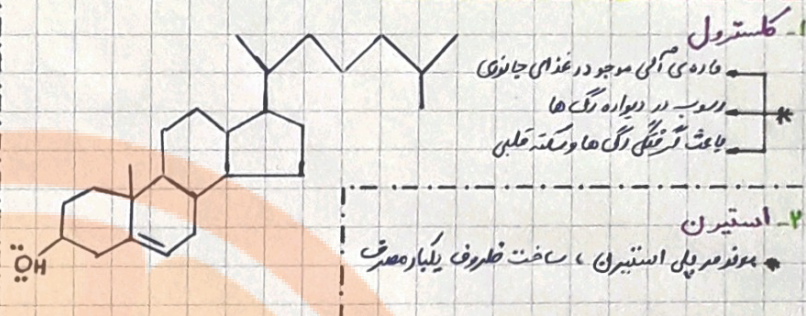 ۱- کلسترول
ماده‌ی آلی موجود در غذاهای جانوری
رسوب در دیواره رگ ها
باعث گرفتگی رگ ها و سکته قلبی
۲- استیرن
مونومر پلی استیرن ، ساخت ظروف یکبار مصرف
OH